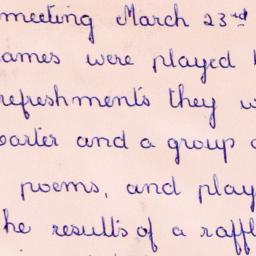 meeting March 23rd
games were played
refreshments they w
and a group
poems, and play
the results of a raffl